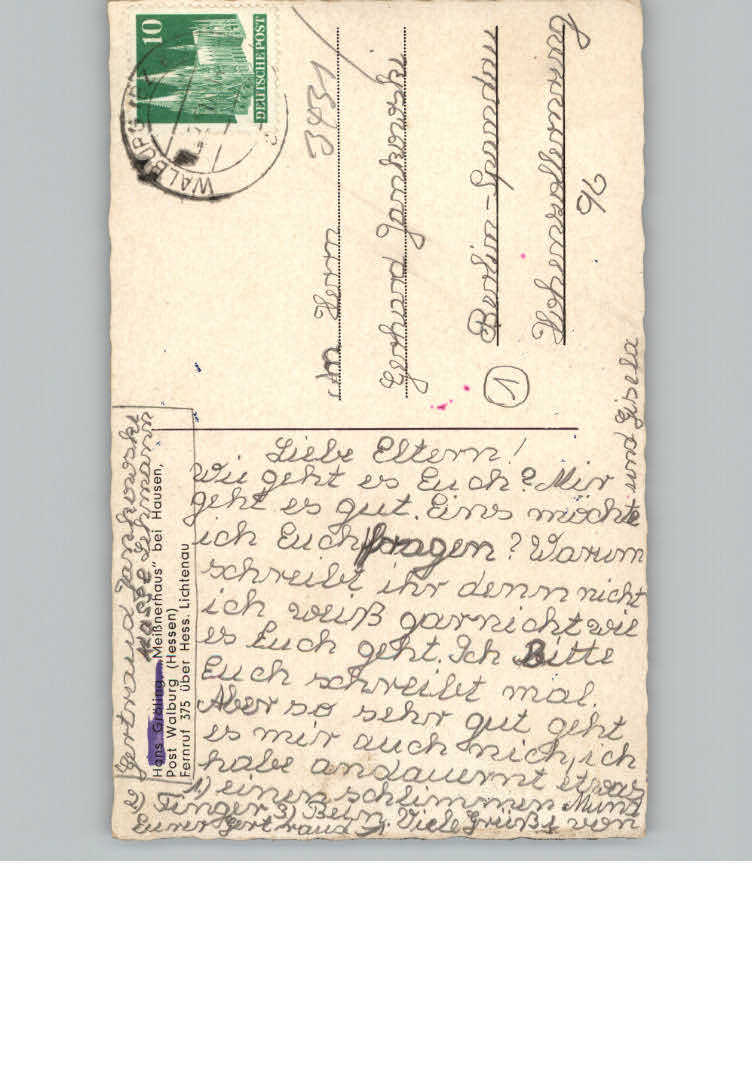 10
DEUTSCHE POST
WALBURG
3431
An Herrn
Gerhard Jankowski
Berlin-Spandau
Hohenzollernring
96
1
Gertraud Jankowski
Lehmann
Hans Gröling, „Meißnerhaus" bei Hausen,
Post Walburg (Hessen)
Fernruf 375 über Hess. Lichtenau
Liebe Eltern!
Wie geht es Euch? Mir
geht es gut. Eins möchte
ich Euch fragen? Warum
schreibt ihr denn nicht
ich weiß garnicht wie
es Euch geht. Ich Bitte
Euch schreibt mal.
Aber so sehr gut geht
es mir auch nich, ich
habe andauernt etwas
1) einen schlimmen Mund
2) Finger 3) Bein. Viele Grüße von
Eurer Gertraud
und Gisela